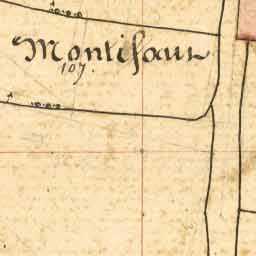 Montifaut
107.